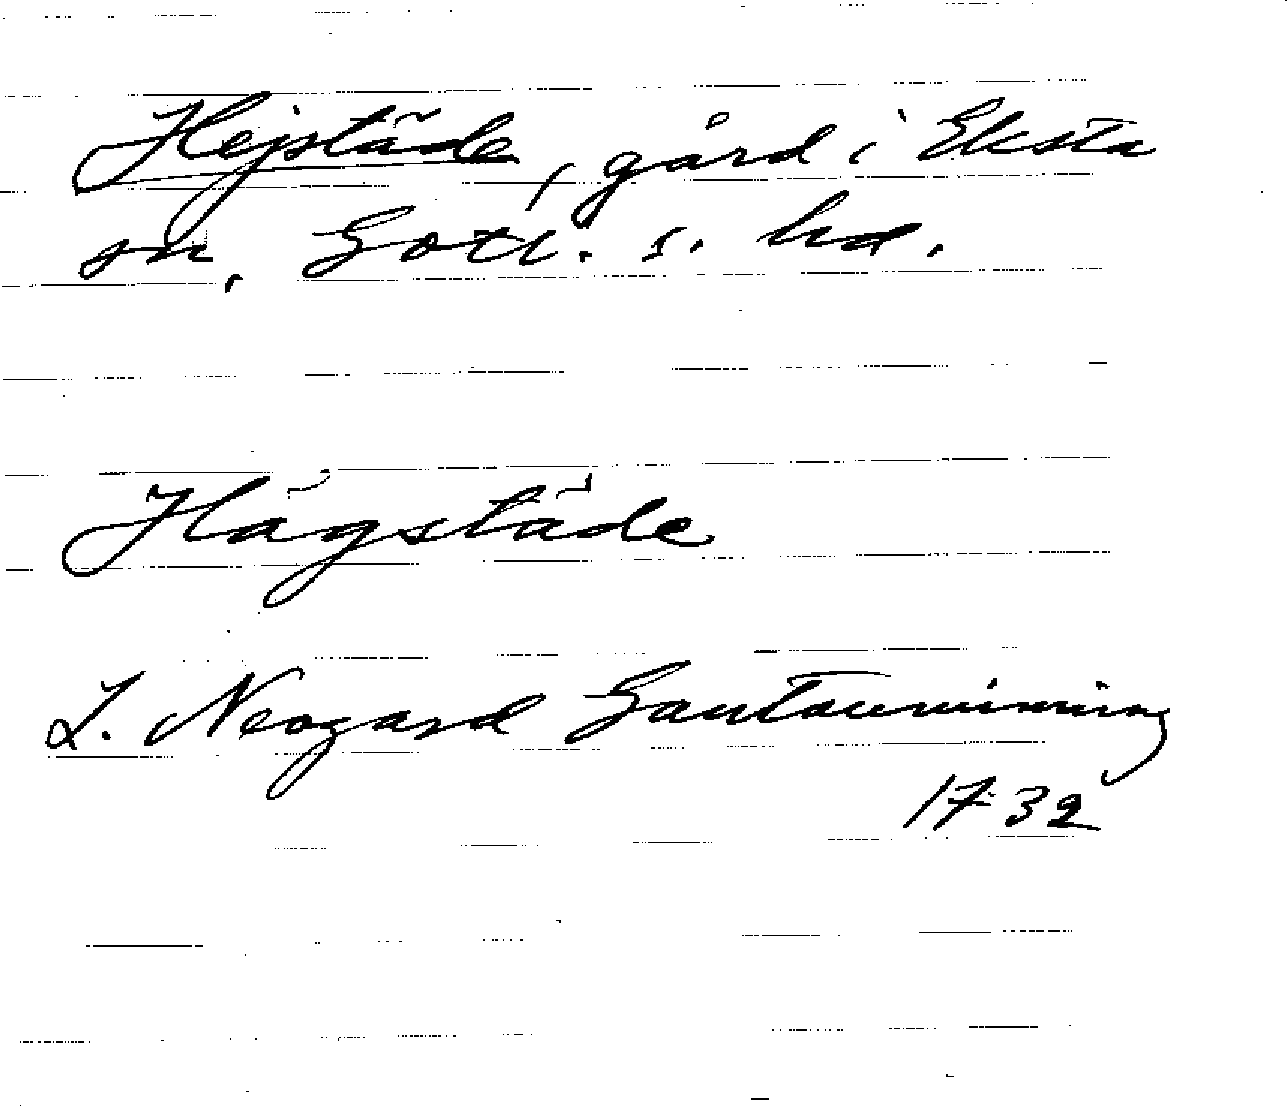 Hejstäde, gård i Eksta
sn, Gotl. s. hd.
Hägstäde
L. Neogard Gautauminning
1732